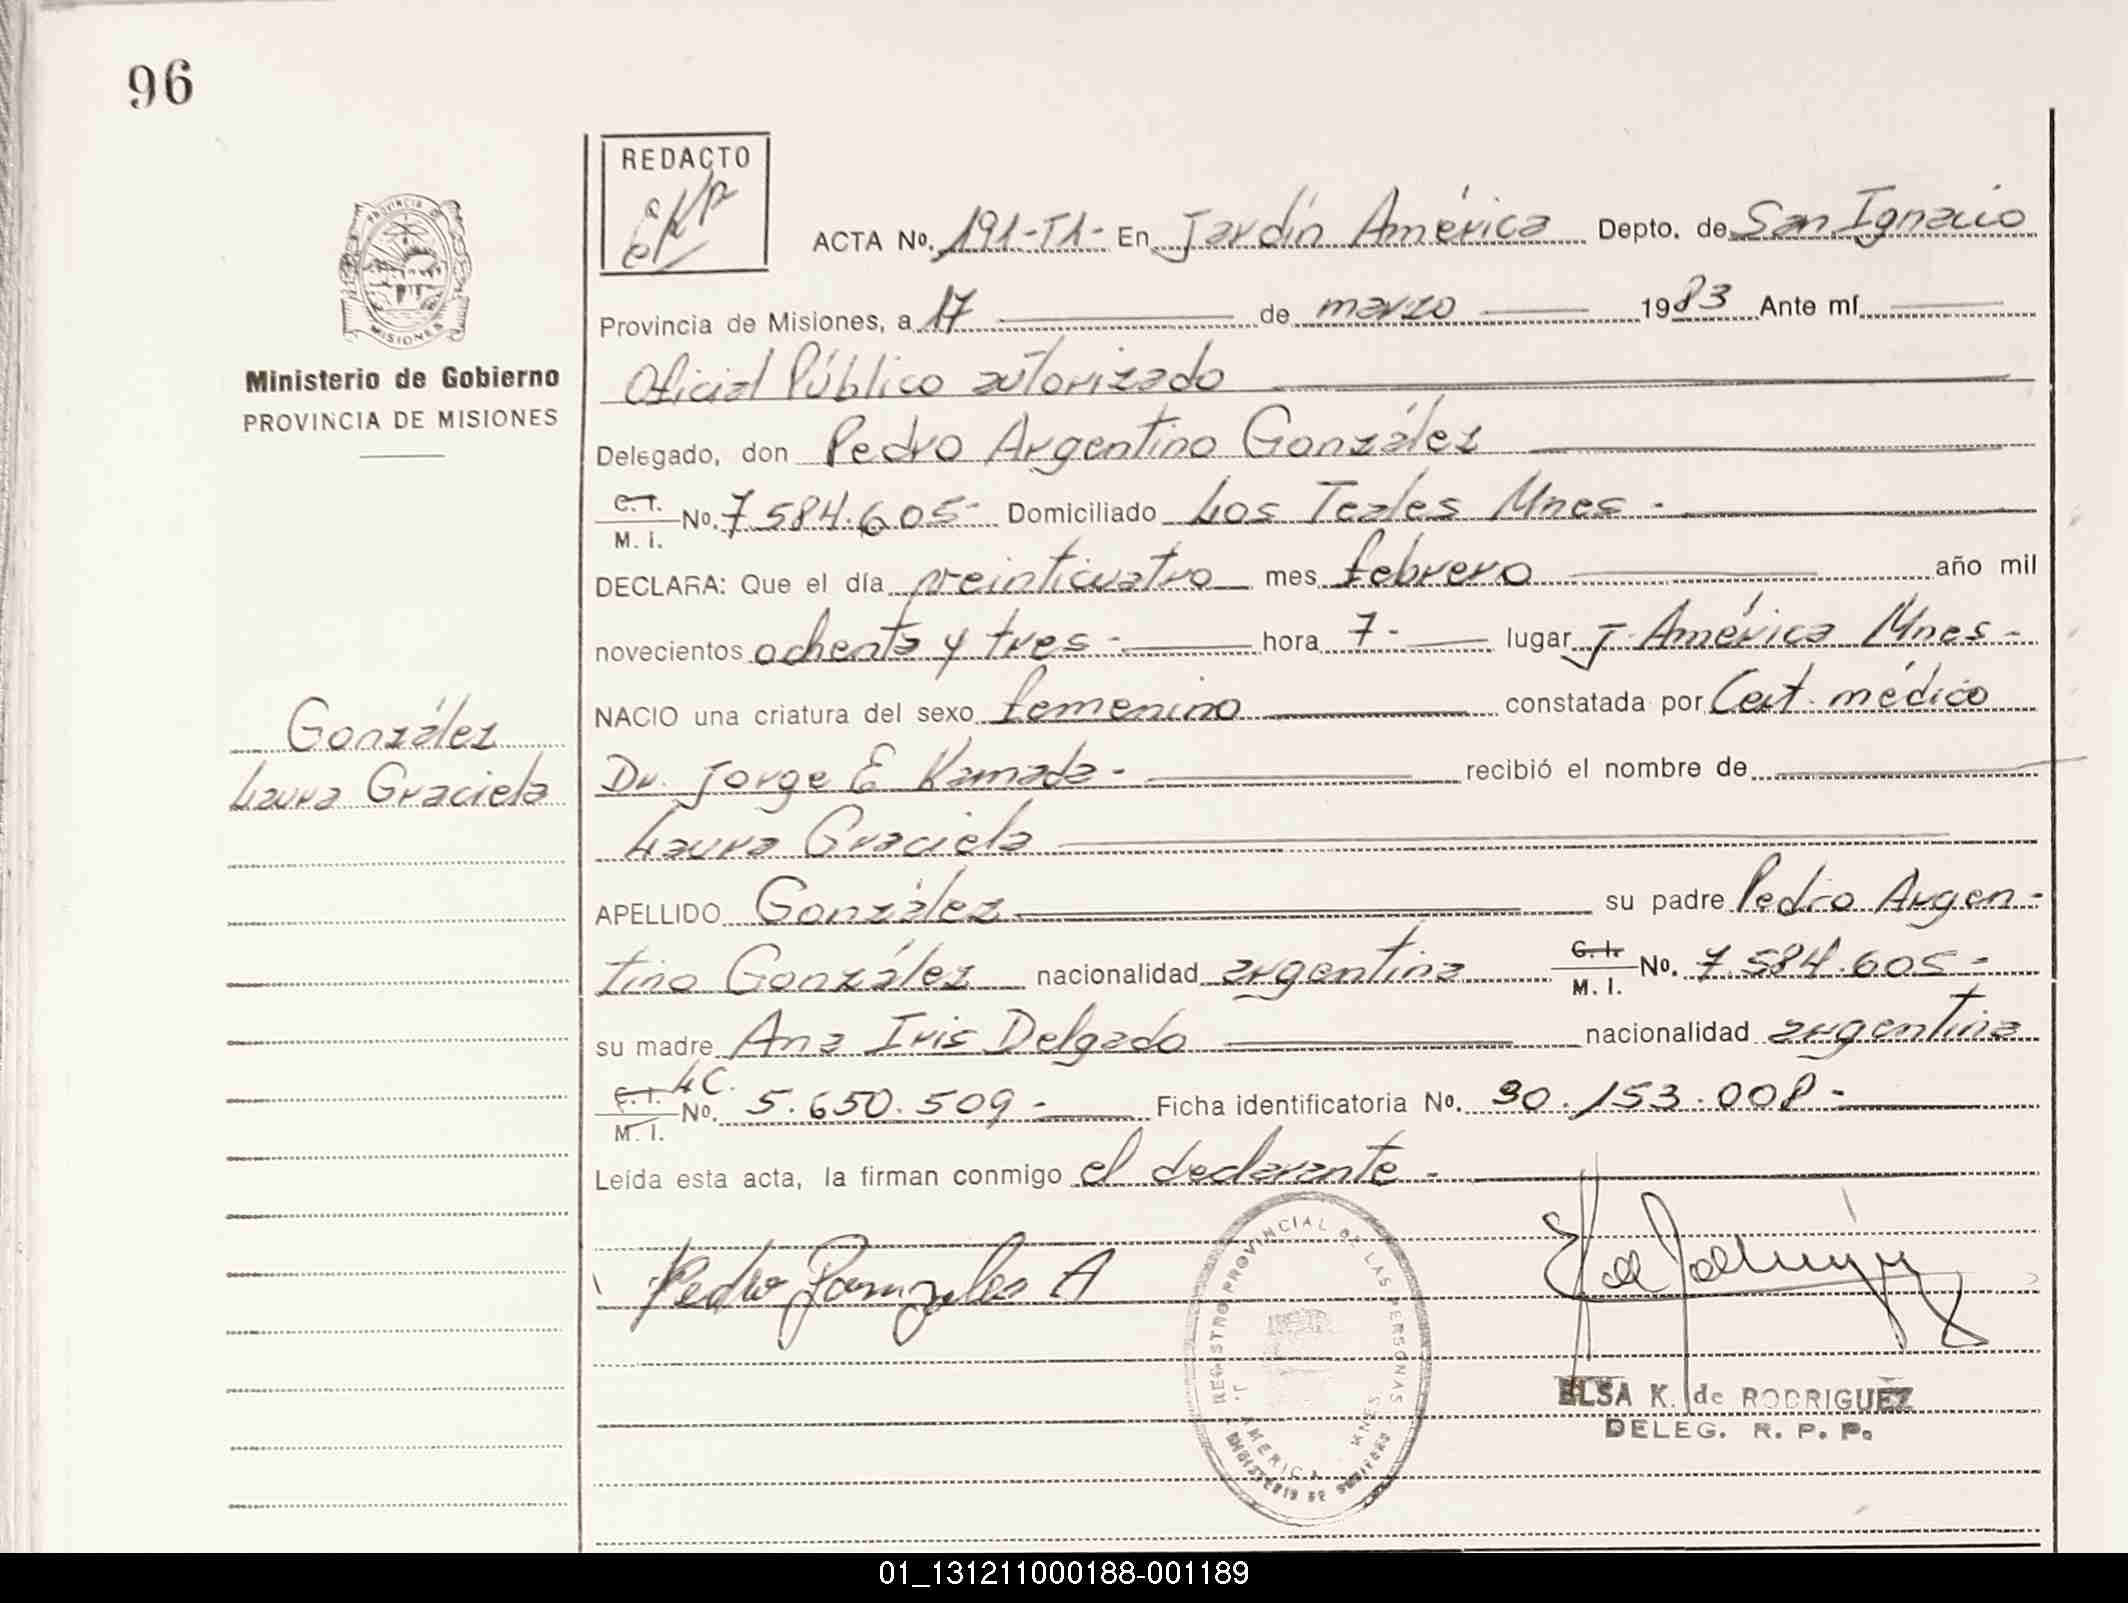 96
REDACTO
ACTA No. 191-T1- En Jardín América Depto. de San Ignacio
Provincia de Misiones, a 17 de marzo 1983 Ante mí
Oficial Público autorizado
Delegado, don Pedro Argentino González
C. I. M. I. No. 7.584.605- Domiciliado Los Teales Mnes -
DECLARA: Que el día veinticuatro mes febrero año mil
novecientos ochenta y tres - hora 7- lugar J. América Mnes -
NACIO una criatura del sexo femenino constatada por Cert. médico
Dr. Jorge E Kamada - recibió el nombre de
Laura Graciela
APELLIDO González su padre Pedro Argen-
tino González nacionalidad argentina C. I. M. I. No. 7.584.605-
su madre Ana Iris Delgado nacionalidad argentina
C. I. M. I. LC. No. 5.650.509- Ficha identificatoria No. 30.153.008-
Leída esta acta, la firman conmigo el declarante -
Pedro Gonzales A
ELSA K. de RODRIGUEZ
DELEG. R. P. P.
REGISTRO PROVINCIAL DE LAS PERSONAS
J. AMERICA MNES
MINISTERIO DE GOBIERNO
PROVINCIA DE
MISIONES
Ministerio de Gobierno
PROVINCIA DE MISIONES
González
Laura Graciela
01_131211000188-001189